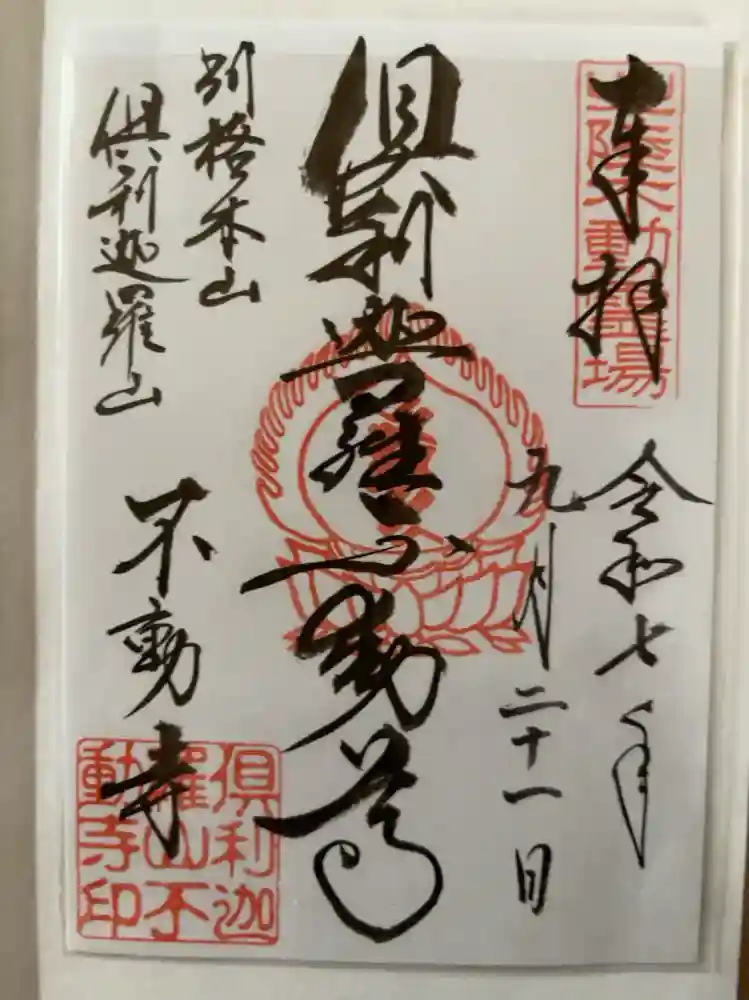 奉拝
北陸不動霊場
令和七年
九月二十一日
俱利迦羅不動尊
別格本山
俱利迦羅山
不動寺
俱利迦
羅山不
動寺印